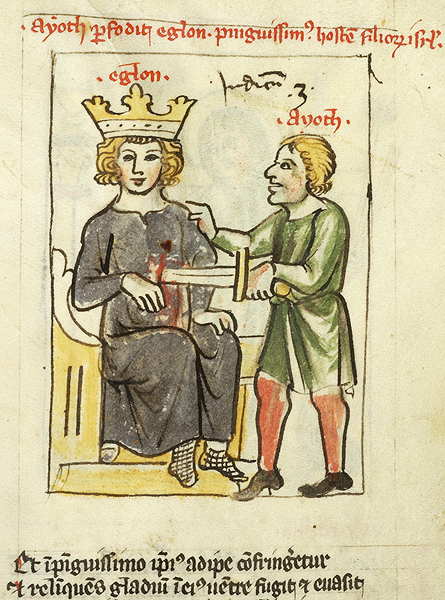 · Ayoth ꝑfodit eglon · pinguissim⁹ hostē filioꝝ isrl̓ ·
· eglon ·
judicū · 3 ·
· Ayoth ·
Et īpīguissimo ip̄i⁹ adipe cōfringetur
Et relīquens gladiū ī ei⁹ uentre fugit ⁊ euasit